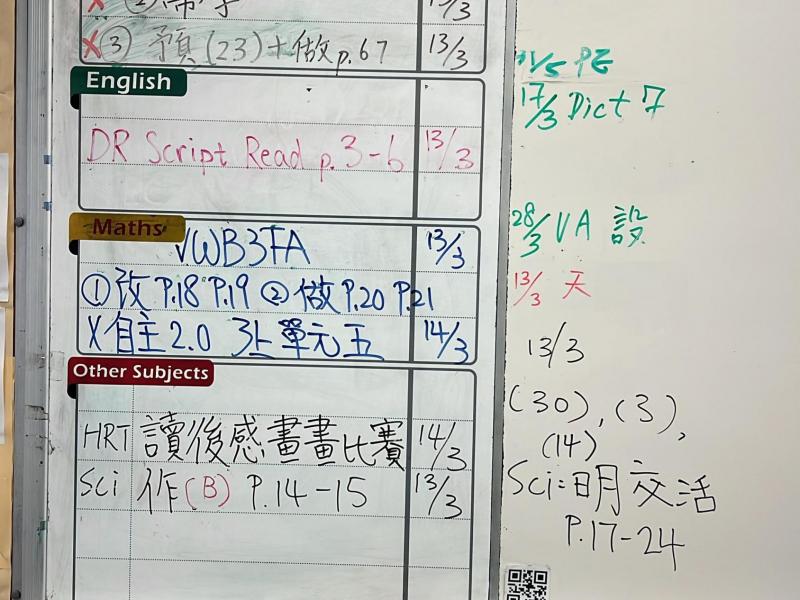 13/3
X ③ 預(23)+做p.67 13/3
English
DR Script Read p.3-6 13/3
Maths
√WB3FA 13/3
①改 P.18 P.19 ②做 P.20 P.21
X自主2.0 3上單元五 14/3
Other Subjects
HRT 讀後感畫畫比賽 14/3
Sci 作(B) P.14-15 13/3
PE
17/3 Dict 7
28/3 VA 設
13/3 天
13/3
(30),(3),
(14)
Sci:明交活
P.17-24